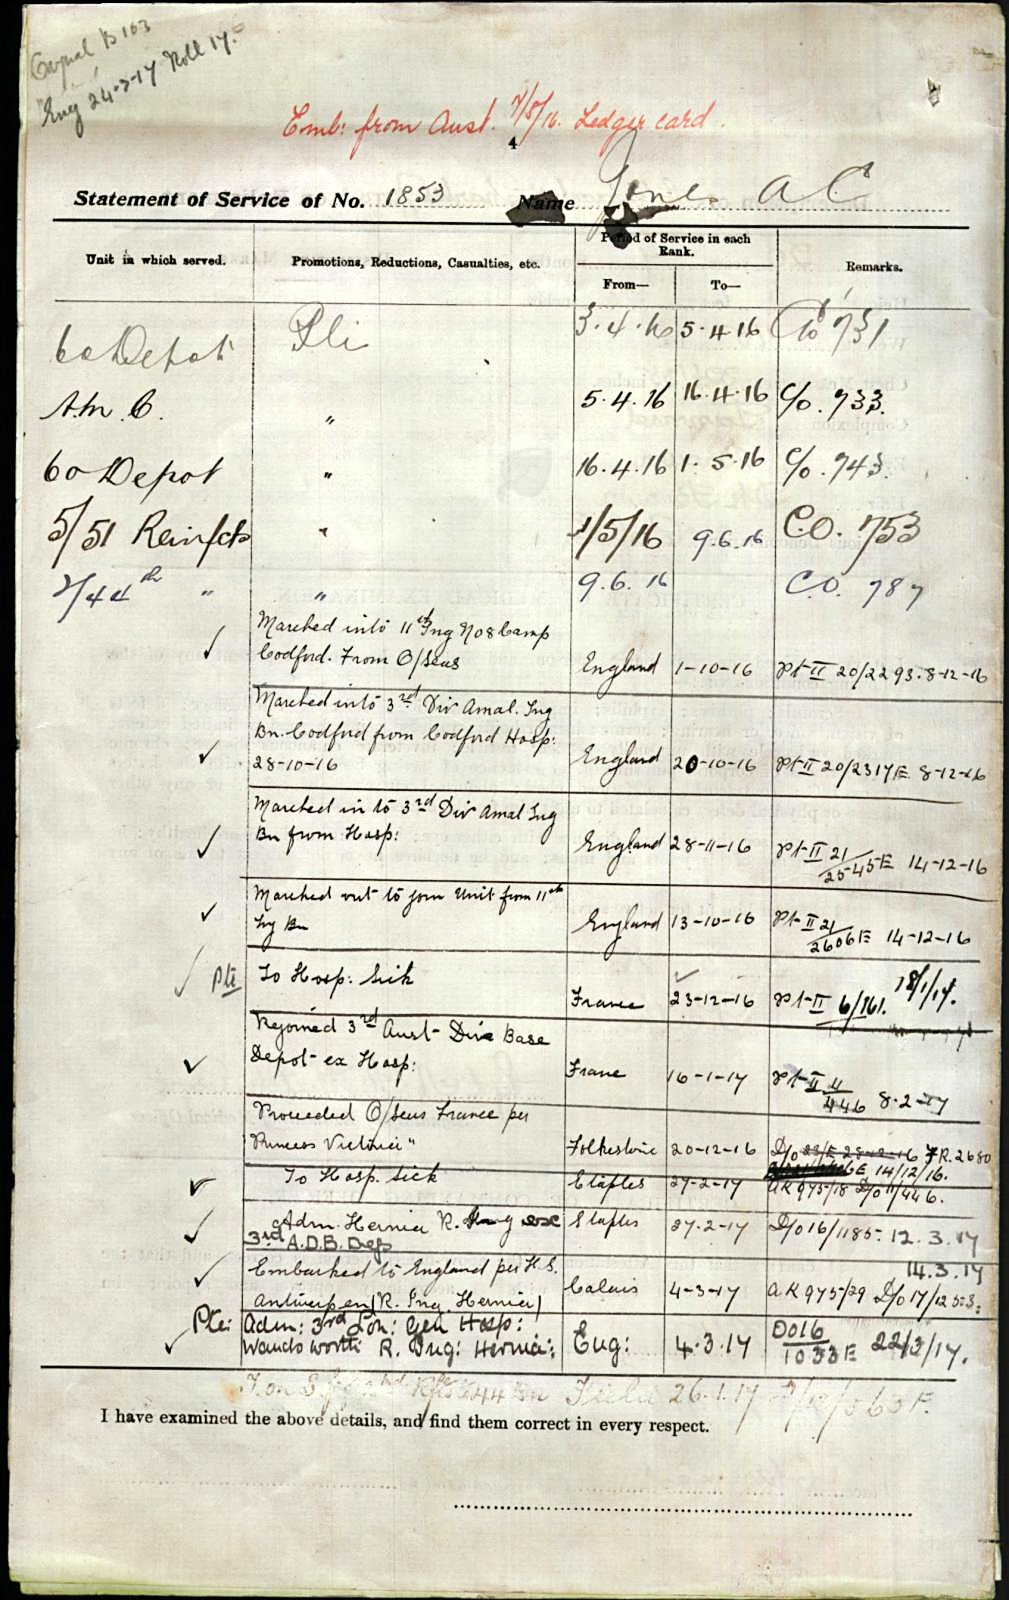 B 103
Eng 24-3-17 Roll 17.
Emb: from Aust. 7/8/16. Ledger card.
4
Statement of Service of No. 1853 Name Jones A C
Unit in which served. Promotions, Reductions, Casualties, etc. Period of Service in each Rank. From— To— Remarks.
60 Depot Pte 3.4.16 5.4.16 Co 731
A.M.C. " 5.4.16 16.4.16 C/o. 733.
60 Depot " 16.4.16 1.5.16 C/o. 743.
5/51 Reinfcts " 1/5/16 9.6.16 C.O. 753
2/44th " " 9.6.16 C.O. 787
Marched into 11th Trng No 8 Camp
Codford. From O/Seas England 1-10-16 Pt II 20/2293. 8-12-16
Marched into 3rd Div Amal. Trg
Bn. Codford from Codford Hosp:
28-10-16 England 20-10-16 Pt II 20/2317E 8-12-16
Marched in to 3rd Div Amal Trg
Bn from Hosp: England 28-11-16 Pt II 21/2545E 14-12-16
Marched out to join Unit from 11th
Trg Bn England 13-10-16 Pt II 21/2606E 14-12-16
Pte To Hosp: Sick France 23-12-16 Pt II 6/161. 18/1/17.
Rejoined 3rd Aust Div Base
Depot ex Hosp: France 16-1-17 Pt II 4/446 8-2-17
Proceeded O/Seas France per
Princess Victoria" Folkestone 20-12-16 D/o 23/E 28-2-16 FR.2680
E 14/12/16.
To Hosp. Sick Etaples 27-2-17 AK 975/18 D/o 11/446.
Adm. Hernia R. Ing Etaples 27.2-17 D/o 16/1185- 12.3.17
3rd A.D.B. Dep
Embarked to England per H.S. 14.3.17
Antwerpen (R. Ing. Hernia) Calais 4-3-17 AK 975/29 D/o 17/1253:
Pte: Adm: 3rd Lon: Gen Hosp:
Wandsworth R. Ing: Hernia: Eng: 4.3.17 DO16/1033E 22/3/17.
T. on S 44 Bn Field 26.1.17
I have examined the above details, and find them correct in every respect.